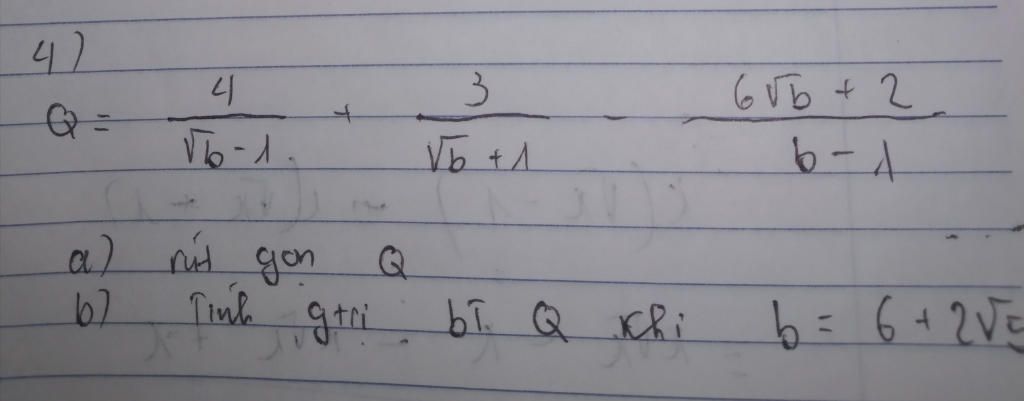 4)
Q = 4/(√b - 1) + 3/(√b + 1) - (6√b + 2)/(b - 1)
a) rút gọn Q
b) Tính gtrị bT Q khi b = 6 + 2√5